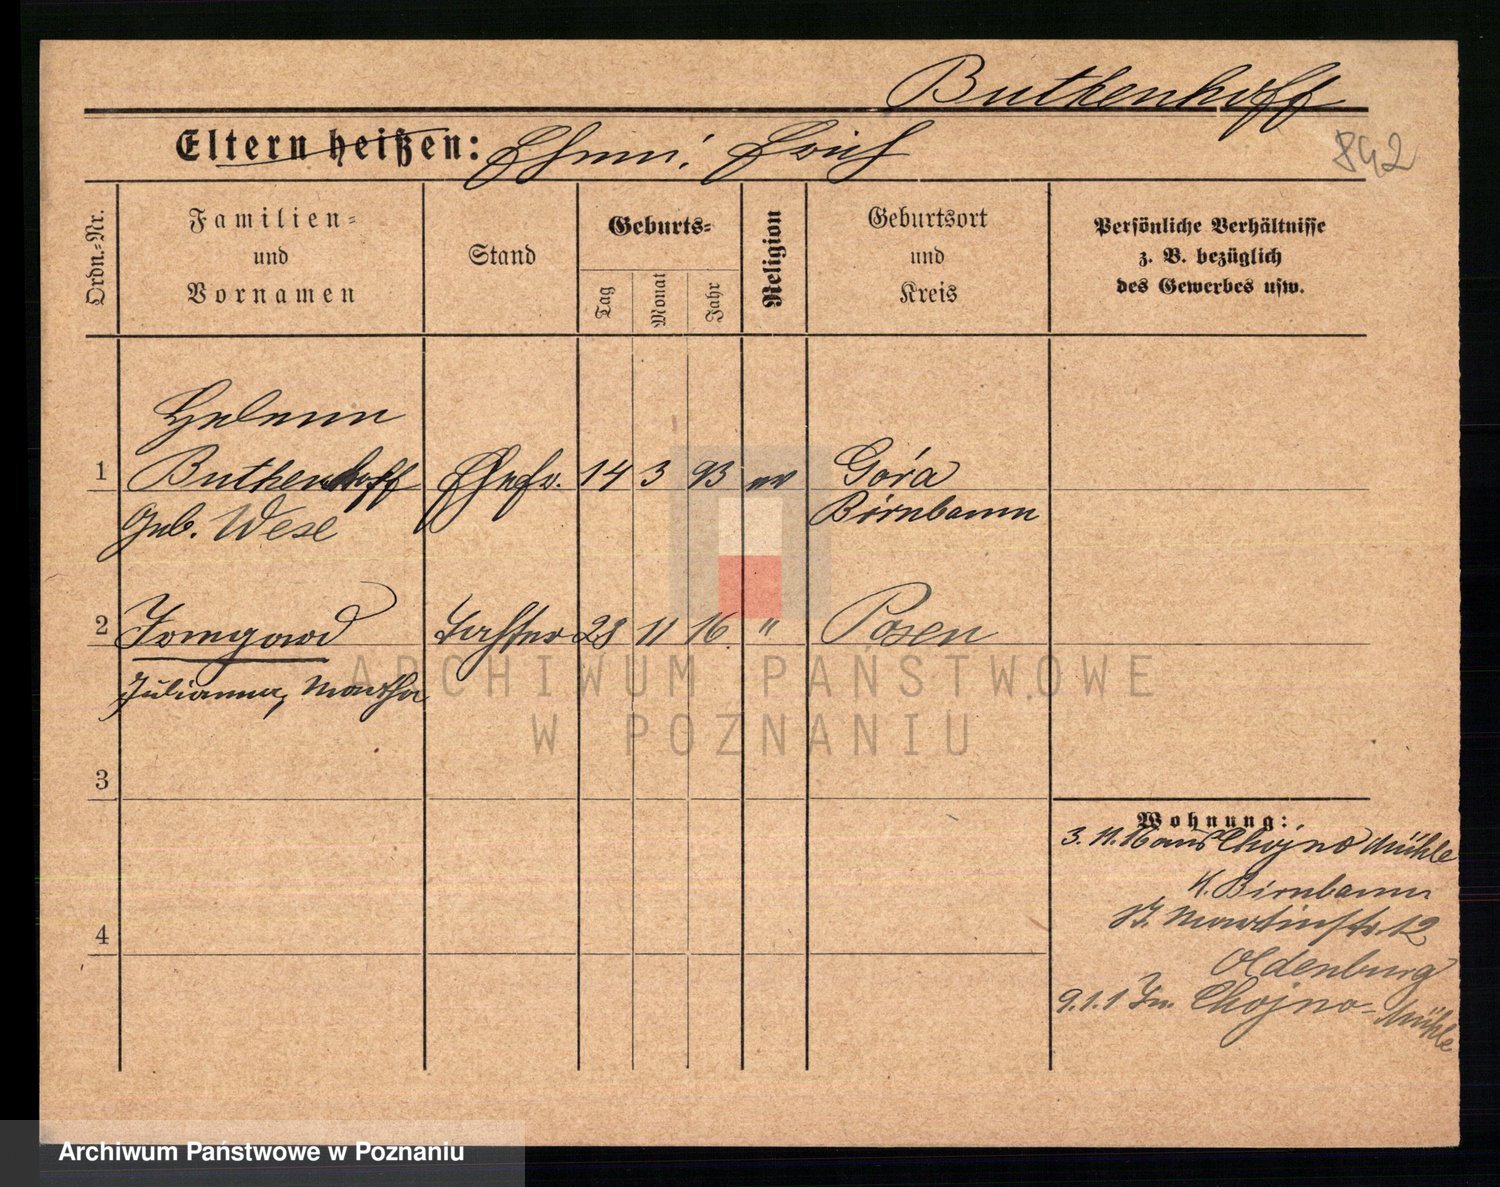 Buthenhoff
Eltern heißen: Ehem: Erich
842
Ordn.-Nr.
Familien-
und
Vornamen
Stand
Geburts-
Tag
Monat
Jahr
Religion
Geburtsort
und
Kreis
Persönliche Verhältnisse
z. B. bezüglich
des Gewerbes usw.
Helene
1 Buthenhoff Ehefr. 14 3 93 ev Góra
geb. Wese Birnbaum
2 Irmgard Tochter 28 11 16 " Posen
Julianna, Martha
3
4
Wohnung:
3. 11. 16 aus Chojno Mühle
K. Birnbaum
St. Martinstr. 12
Oldenburg
9.1.1 Chojno-Mühle
ARCHIWUM PAŃSTWOWE
W POZNANIU
Archiwum Państwowe w Poznaniu